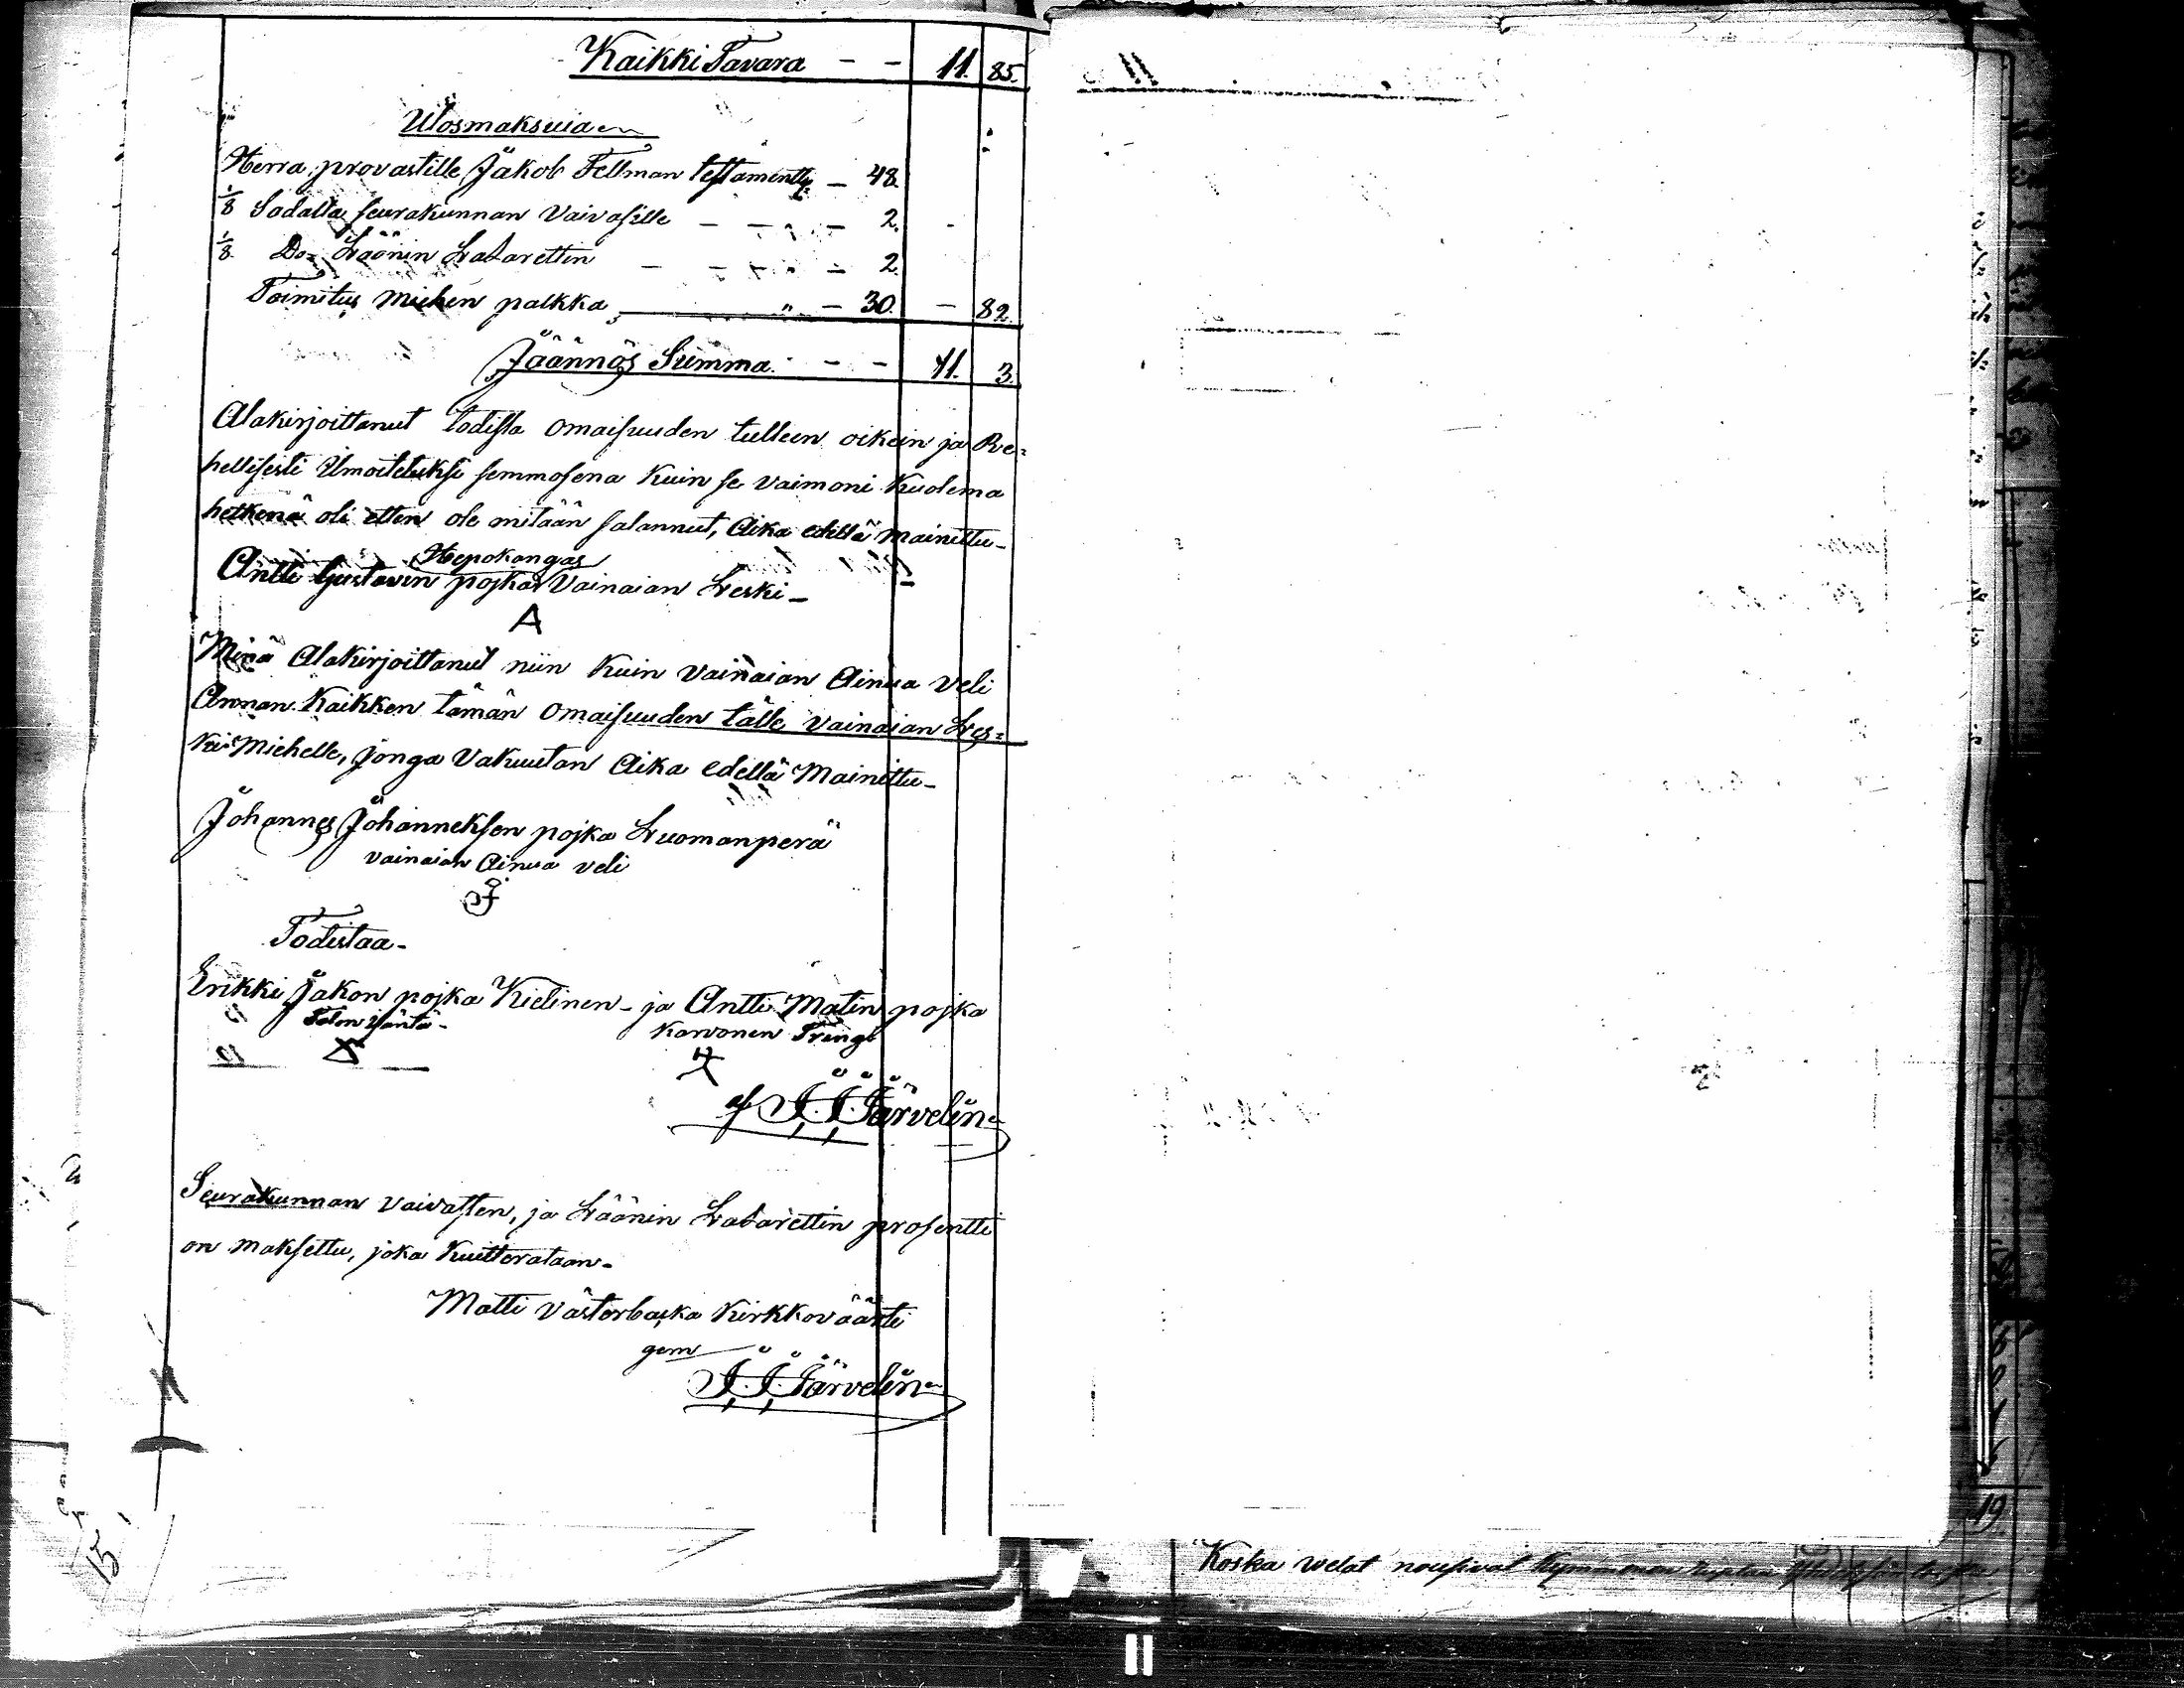 Kaikki Tavara - - 11. 85.
Ulosmaksuia
Herra provastille Jakob Fellman testamentti - 48.
1/8 Sadalta seurakunnan Vaivasille - - - - 2. -
1/8. Do= Läänin Latarettin - - - - 2.
Toimitus miehen palkka " - 30. - 82.
Jäännös Summa - - 11. 3.
Alakirjoittanut todista omaisuuden tulleen oikein ja Re=
hellisesti Ilmoiteluksi semmosena Kuin se vaimoni Kuolema
hetkenä oli etten ole mitään salannut, Aika edellä mainittu-
Hepokangas
Antti Gustavin pojka Vainaian Leski -
A
Minä Alakirjoittanut niin Kuin vainaian Ainua veli
Annan Kaikken tämän omaisuuden tälle vainaian Les=
ki Miehelle, jonga Vakuutan Aika edellä Mainittu-
Johannes Johanneksen pojka Luomanperä
vainaian Ainua veli
J
Todistaa-
Erikki Jakon pojka Kielinen - ja Antti Matin pojka
Talon isäntä - Karvonen Freng
af J. J. Järvelin
Seurakunnan vaivasten, ja Läänin Latarettin prosentti
on maksettu, joka Kuitterataan-
Matti västerbacka Kirkkoväärti
gem
J. J. Järvelin
15
19
Koska welat nousivat
11